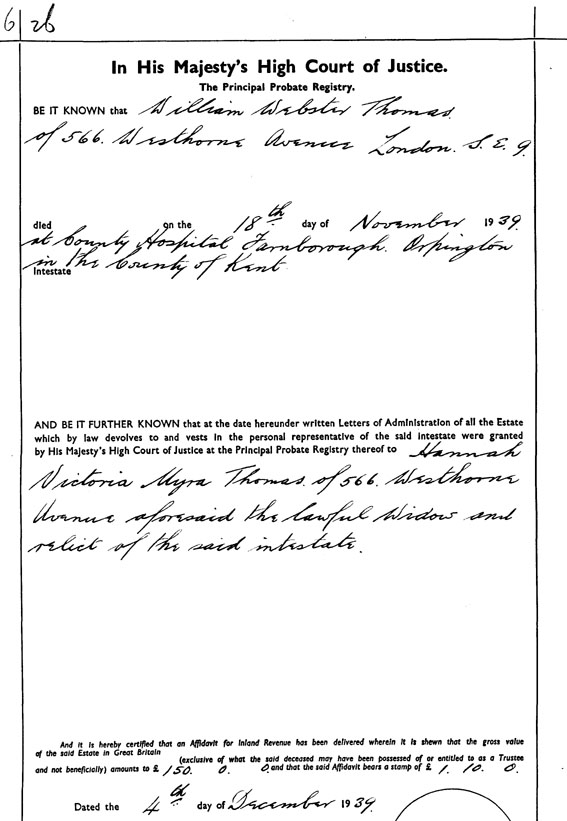 6 26
In His Majesty's High Court of Justice.
The Principal Probate Registry.
BE IT KNOWN that William Webster Thomas
of 566. Westhorne Avenue London. S. E. 9.
died on the 18th day of November 1939.
at County Hospital Farnborough. Orpington
in the County of Kent
Intestate
AND BE IT FURTHER KNOWN that at the date hereunder written Letters of Administration of all the Estate
which by law devolves to and vests in the personal representative of the said intestate were granted
by His Majesty's High Court of Justice at the Principal Probate Registry thereof to Hannah
Victoria Myra Thomas. of 566. Westhorne
Avenue aforesaid the lawful Widow and
relict of the said intestate.
And it is hereby certified that an Affidavit for Inland Revenue has been delivered wherein it is shewn that the gross value
of the said Estate in Great Britain
(exclusive of what the said deceased may have been possessed of or entitled to as a Trustee
and not beneficially) amounts to £ 150. 0. 0. and that the said Affidavit bears a stamp of £ 1. 10. 0.
Dated the 4th day of December 1939.